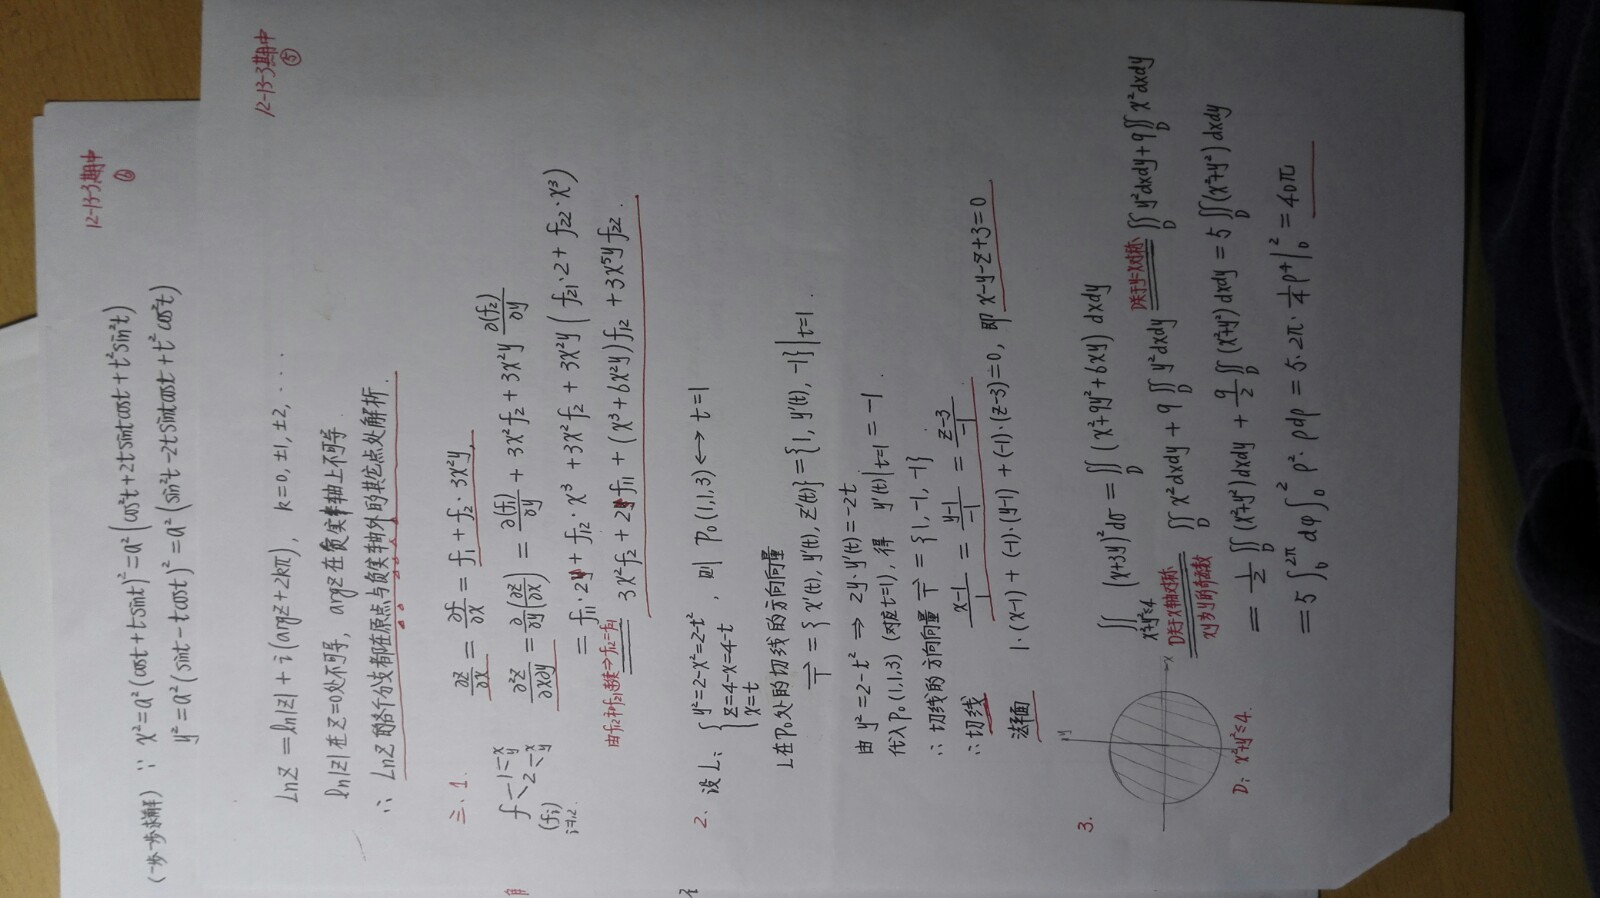 12-13-3期中
⑥
(一步一步求解) ∵ x²=a²(cost+tsint)²=a²(cos²t+2tsintcost+t²sin²t)
y²=a²(sint-tcost)²=a²(sin²t-2tsintcost+t²cos²t)
12-13-3期中
⑤
Lnz=ln|z|+i(argz+2kπ), k=0,±1,±2,...
ln|z|在z=0处不可导, argz在负实轴上不可导
∴ Lnz的各个分支都在原点与负实轴外的其它点处解析.
三.1. ∂z/∂x = ∂f/∂x = f₁+f₂·3x²y,
f 1 x y
2 x y
(fi)
i=1,2
∂²z/∂x∂y = ∂/∂y(∂z/∂x) = ∂(f₁)/∂y + 3x²f₂ + 3x²y ∂(f₂)/∂y
= f₁₁·2 + f₁₂·x³ + 3x²f₂ + 3x²y(f₂₁·2+f₂₂·x³)
由f₁₂和f₂₁连续⇒f₁₂=f₂₁
3x²f₂+2f₁₁+(x³+6x²y)f₁₂+3x⁵yf₂₂.
2. 设L: { y²=2-x²=2-t²
z=4-x=4-t
x=t
, 则 P₀(1,1,3)↔t=1
L在P₀处的切线的方向向量
T={x'(t),y'(t),z'(t)}={1,y'(t),-1}|t=1.
由 y²=2-t² ⇒ 2y·y'(t)=-2t
代入P₀(1,1,3)(对应t=1), 得 y'(t)|t=1=-1.
∴ 切线的方向向量 T={1,-1,-1}
∴ 切线 (x-1)/1 = (y-1)/-1 = (z-3)/-1
法平面 1·(x-1)+(-1)·(y-1)+(-1)·(z-3)=0, 即 x-y-z+3=0
3.
y
x
D: x²+y²≤4.
∬x²+y²≤4 (x+3y)²dσ = ∬D (x²+9y²+6xy)dxdy
D关于x轴对称
xy为y的奇函数
∬D x²dxdy + 9∬D y²dxdy D关于y=x对称 ∬D y²dxdy+9∬D x²dxdy
= 1/2 ∬D (x²+y²)dxdy + 9/2 ∬D (x²+y²)dxdy = 5∬D (x²+y²)dxdy
= 5∫₀^2π dφ∫₀² ρ²·ρdρ = 5·2π·1/4ρ⁴|₀² = 40π